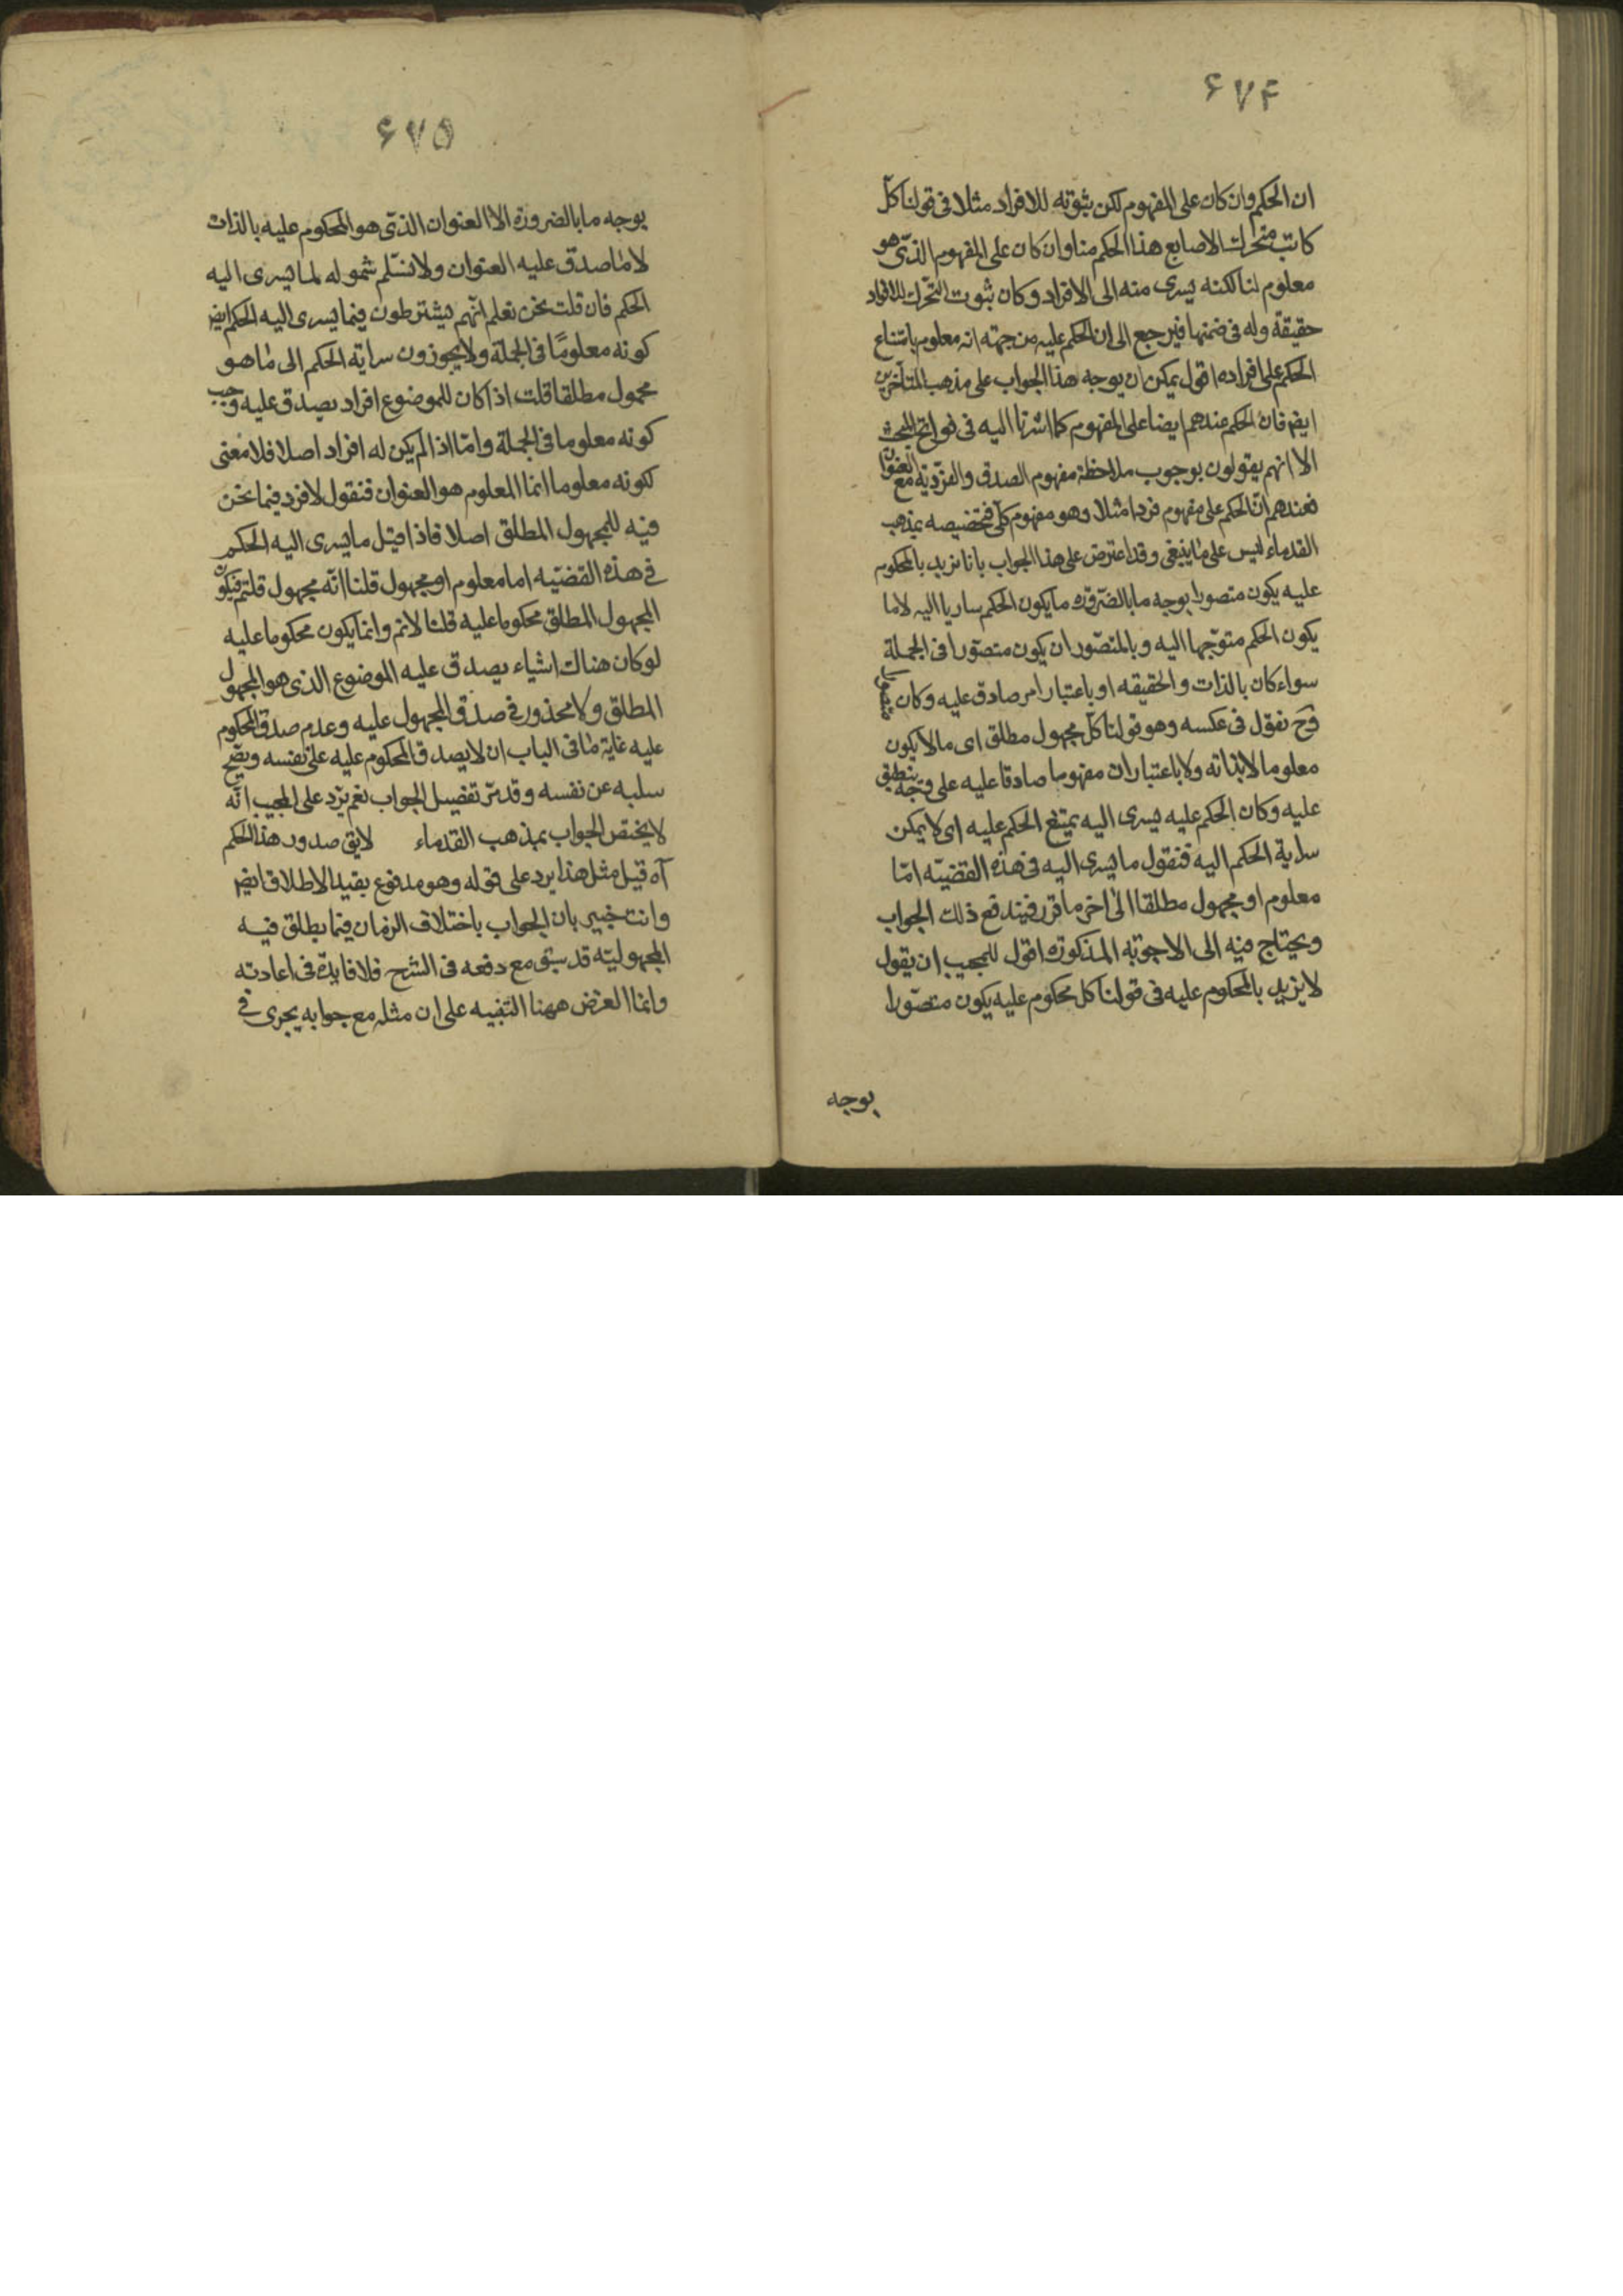 ۶۷۴
ان الحكم وان كان على المفهوم لكن بثبوته للافراد مثلا فى قولنا كلّ
كاتب متحرك الاصابع هذا الحكم منا وان كان على المفهوم الذى هو
معلوم لنا لكنه يسرى منه الى الافراد وكان ثبوت التحرك للافراد
حقيقة وله فى ضمنها فيرجع الى ان الحكم عليه من جهته انه معلوم بامتناع
الحكم على افراده اقول يمكن ان يوجه هذا الجواب على مذهب المتاخرين
ايضا فان الحكم عندهم ايضا على المفهوم كما اشرنا اليه فى فواتح البحث
الا انهم يقولون بوجوب ملاحظة مفهوم الصدق والفردية مع العنوان
فعندهم انّ الحكم على مفهوم فرد امثلا وهو مفهوم كلّى فتخصيصه بمذهب
القدماء ليس على ما ينبغى وقد اعترض على هذا الجواب بانا نريد بالمحكوم
عليه يكون متصورا بوجه ما بالضّرورة ما يكون الحكم ساريا اليه لاما
يكون الحكم متوّجها اليه وبالمتصّور ان يكون متصوّرا فى الجملة
سواء كان بالذات والحقيقه او باعتبار امر صادق عليه وكان
وح نقول فى عكسه وهو قولنا كلّ مجهول مطلق اى ما لا يكون
معلوما لا بذاته ولا باعتبار ان مفهوما صادقا عليه على وجه ينطبق
عليه وكان الحكم عليه يسرى اليه يمتنع الحكم عليه اى لا يمكن
سراية الحكم اليه فنقول ما يسرى اليه فى هذه القضيّه امّا
معلوم او مجهول مطلقا الى اخر ما قرر فيندفع ذلك الجواب
ويحتاج فيه الى الاجوبه المذكورة اقول للمجيب ان يقول
لا نريد بالمحكوم عليه فى قولنا كل محكوم عليه يكون متصّورا
بوجه
۶۷۵
بوجه ما بالضرورة الا العنوان الذى هو المحكوم عليه بالذات
لا ما صدق عليه العنوان ولا نسّلم شموله لما يسرى اليه
الحكم فان قلت نحن نعلم انّهم يشترطون فيما يسرى اليه الحكم ايض
كونه معلومًا فى الجملة ولا يجوزون سراية الحكم الى ما هو
مجهول مطلقا قلت اذا كان للموضوع افراد يصدق عليه وجب
كونه معلوما فى الجملة وامّا اذا لم يكن له افراد اصلا فلا معنى
لكونه معلوما انما المعلوم هو العنوان فنقول لا فرد فيما نحن
فيه للمجهول المطلق اصلا فاذا قيل ما يسرى اليه الحكم
فى هذه القضيّه اما معلوم او مجهول قلنا انّه مجهول قلتم فيكون
المجهول المطلق محكوما عليه قلنا لانم وانما يكون محكوما عليه
لو كان هناك اشياء يصدق عليه الموضوع الذى هو المجهول
المطلق ولا محذور فى صدق المجهول عليه وعدم صدق المحكوم
عليه غاية ما فى الباب ان لا يصدق المحكوم عليه على نفسه ويصّح
سلبه عن نفسه وقد مرّ تفصيل الجواب نعم يرد على المجيب انّه
لا يختص الجواب بمذهب القدماء لايق صدور هذا الحكم
آه قيل مثل هذا يرد على قوله وهو مدفوع بقيد الاطلاق ايض
وانت خبير بان الجواب باختلاف الزمان فيما يطلق فيه
المجهوليّه قد سبق مع دفعه فى الشرح فلا فايدة فى اعادته
وانما الغرض ههنا التنبيه على ان مثله مع جوابه يجرى فى